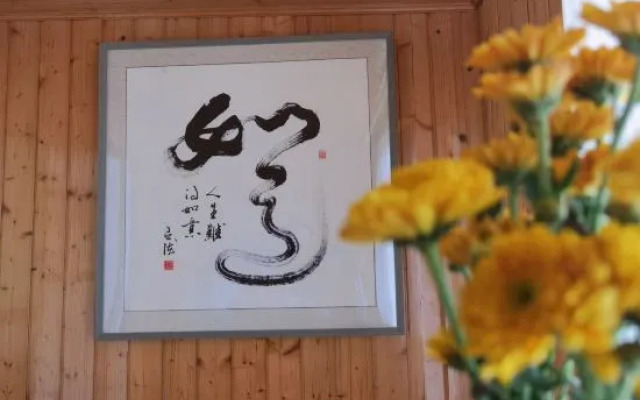 如意
人生難
得如意